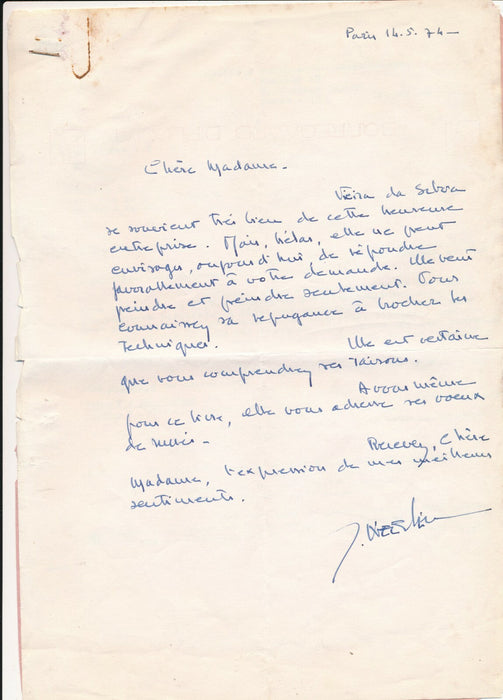 Paris 14.5.74 —
Chère Madame —
Vieira da Silva
se souvient très bien de cette heureuse
entreprise. Mais, hélas, elle ne peut
envisager, aujourd'hui, de répondre
favorablement à votre demande. Elle veut
peindre et peindre seulement. Vous
connaissez sa répugnance à
les
techniques.
Elle est certaine
que vous comprendrez ses raisons.
A vous même
pour ce livre, elle vous adresse ses voeux
de succès —
Recevez, Chère
Madame, l'expression de mes meilleurs
sentiments.